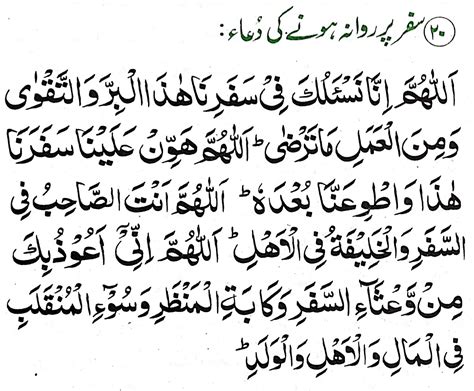 ۲۰ سفر پر روانہ ہونے کی دُعاء :
اَللّٰهُمَّ اِنَّا نَسْئَلُكَ فِیْ سَفَرِنَا هٰذَا الْبِرَّ وَالتَّقْوٰی
وَمِنَ الْعَمَلِ مَا تَرْضٰی ؕ اَللّٰهُمَّ هَوِّنْ عَلَیْنَا سَفَرَنَا
هٰذَا وَاطْوِ عَنَّا بُعْدَهٗ ؕ اَللّٰهُمَّ اَنْتَ الصَّاحِبُ فِی
السَّفَرِ وَالْخَلِیْفَةُ فِی الْاَهْلِ ؕ اَللّٰهُمَّ اِنِّیْۤ اَعُوْذُ بِكَ
مِنْ وَّعْثَآءِ السَّفَرِ وَكَاٰبَةِ الْمَنْظَرِ وَسُوْٓءِ الْمُنْقَلَبِ
فِی الْمَالِ وَالْاَهْلِ وَالْوَلَدِ ؕ